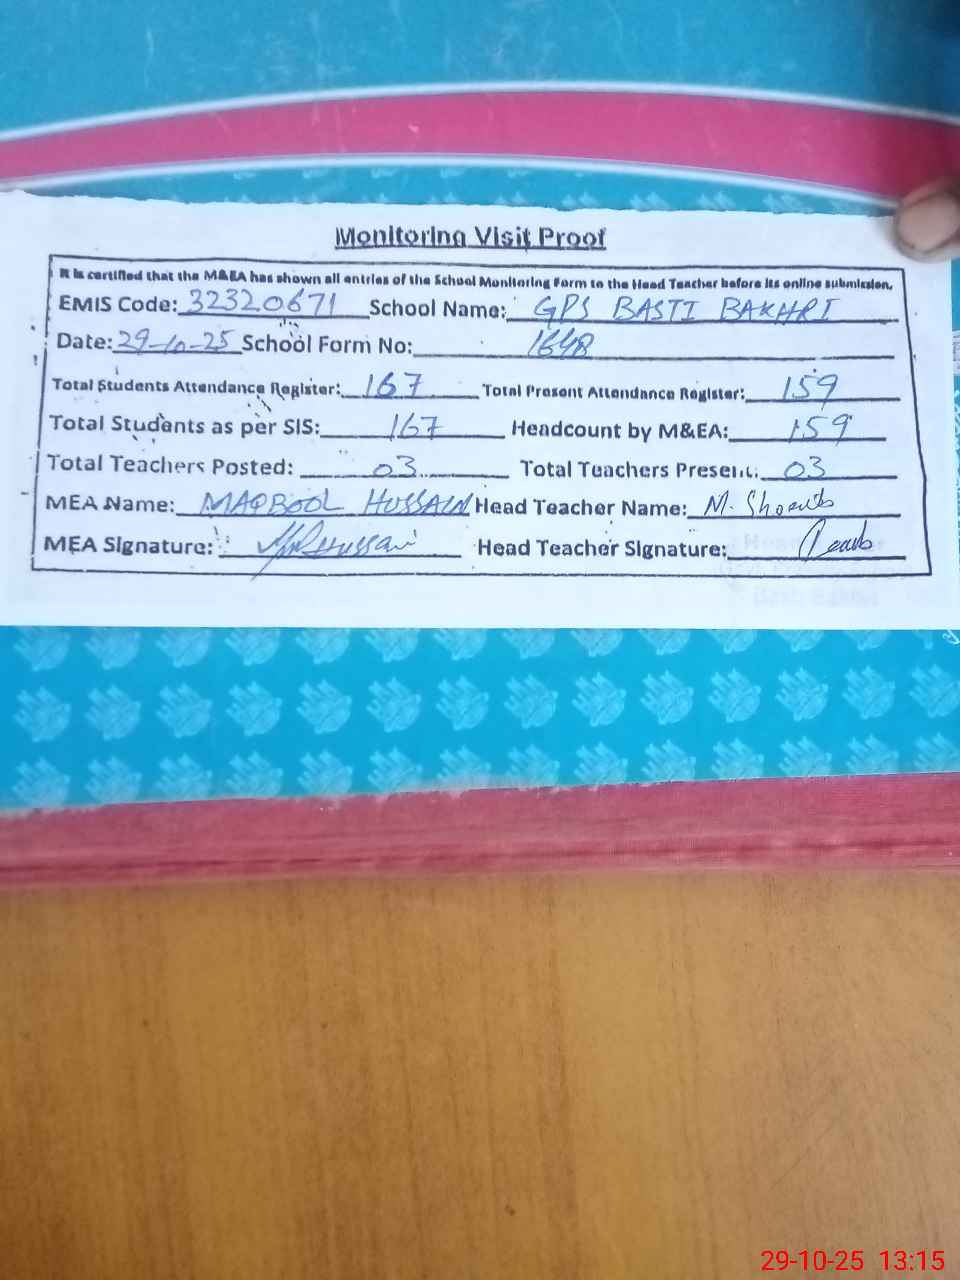 Monitoring Visit Proof
It is certified that the M&EA has shown all entries of the School Monitoring Form to the Head Teacher before its online submission.
EMIS Code: 32320671 School Name: GPS BASTI BAKHRI
Date: 29-10-25 School Form No: 1648
Total Students Attendance Register: 167 Total Present Attendance Register: 159
Total Students as per SIS: 167 Headcount by M&EA: 159
Total Teachers Posted: 03 Total Teachers Present: 03
MEA Name: MAQBOOL HUSSAIN Head Teacher Name: M. Shoaib
MEA Signature: Hussain Head Teacher Signature:
29-10-25 13:15